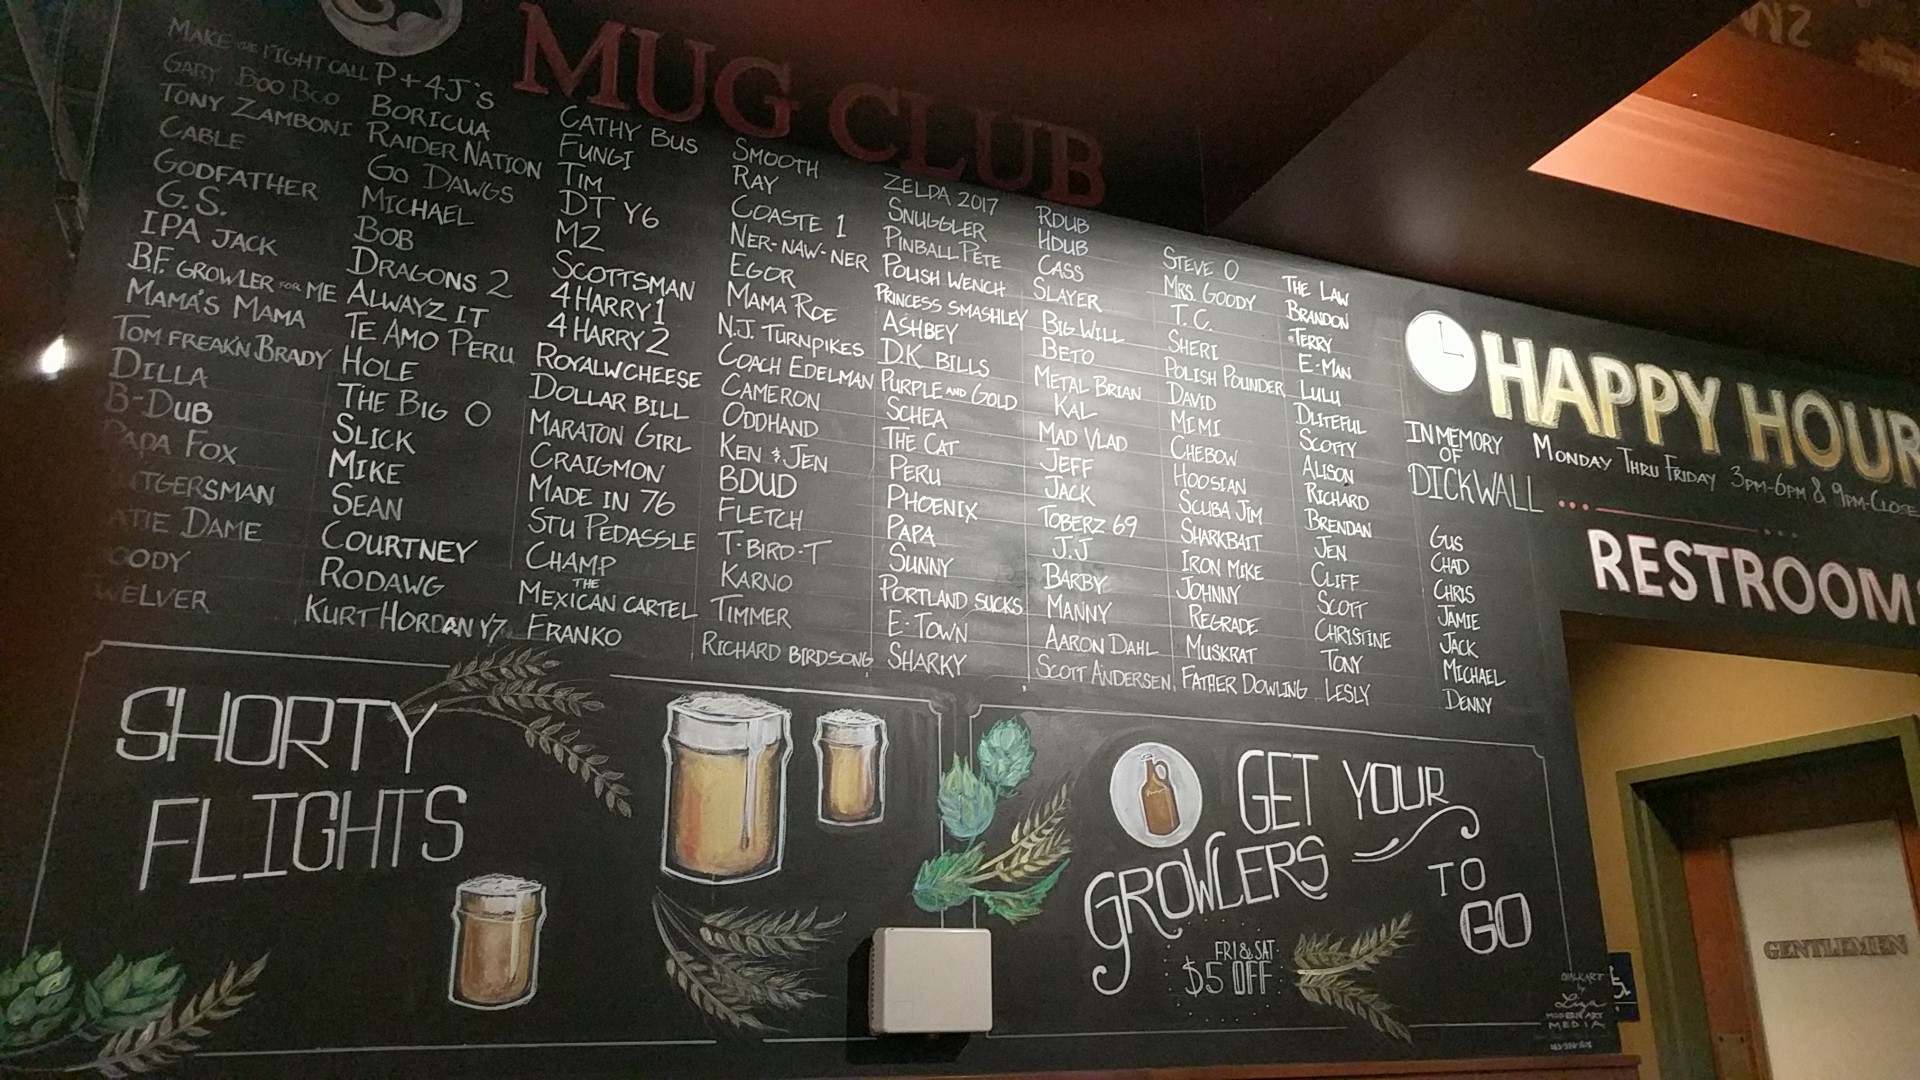 MUG CLUB
MAKE THE RIGHT CALL
GARY BOO BOO
TONY ZAMBONI
CABLE
GODFATHER
G.S.
IPA JACK
B.F. GROWLER FOR ME
MAMA'S MAMA
TOM FREAKN BRADY
DILLA
B-DUB
PAPA FOX
DAME
P+4J'S
BORICUA
RAIDER NATION
GO DAWGS
MICHAEL
BOB
DRAGONS 2
ALWAYZ IT
TE AMO PERU
HOLE
THE BIG O
SLICK
MIKE
SEAN
COURTNEY
RODAWG
KURT HORDAN Y7
CATHY BUS
FUNGI
TIM
DT Y6
MZ
SCOTTSMAN
4 HARRY 1
4 HARRY 2
ROYALWCHEESE
DOLLAR BILL
MARATON GIRL
CRAIGMON
MADE IN 76
STU PEDASSLE
CHAMP
THE
MEXICAN CARTEL
FRANKO
SMOOTH
RAY
COASTE 1
NER-NAW-NER
EGOR
MAMA ROE
N.J. TURNPIKES
COACH EDELMAN
CAMERON
ODDHAND
KEN & JEN
BDUD
FLETCH
T-BIRD-T
KARNO
TIMMER
RICHARD BIRDSONG
ZELDA 2017
SNUGGLER
PINBALL PETE
POLISH WENCH
PRINCESS SMASHLEY
ASHBEY
D.K. BILLS
PURPLE AND GOLD
SCHEA
THE CAT
PERU
PHOENIX
PAPA
SUNNY
PORTLAND SUCKS
E-TOWN
SHARKY
RDUB
HDUB
CASS
SLAYER
BIG WILL
BETO
METAL BRIAN
KAL
MAD VLAD
JEFF
JACK
TOBERZ 69
J.J
BARBY
MANNY
AARON DAHL
SCOTT ANDERSEN
STEVE O
MRS. GOODY
T.C.
SHERI
POLISH POUNDER
DAVID
MIMI
CHEBOW
HOOSIAN
SCUBA JIM
SHARKBAIT
IRON MIKE
JOHNNY
REGRADE
MUSKRAT
FATHER DOWLING
THE LAW
BRANDON
TERRY
E-MAN
LULU
DLITEFUL
SCOTTY
ALISON
RICHARD
BRENDAN
JEN
CLIFF
SCOTT
CHRISTINE
TONY
LESLY
IN MEMORY
OF
DICKWALL
GUS
CHAD
CHRIS
JAMIE
JACK
MICHAEL
DENNY
HAPPY HOUR
MONDAY THRU FRIDAY 3PM-6PM & 9PM-CLOSE
RESTROOMS
SHORTY
FLIGHTS
GET YOUR
GROWLERS
TO
GO
FRI & SAT
$5 OFF
CHALK ART
by
Liza
MODERN ART
MEDIA
GENTLEMEN